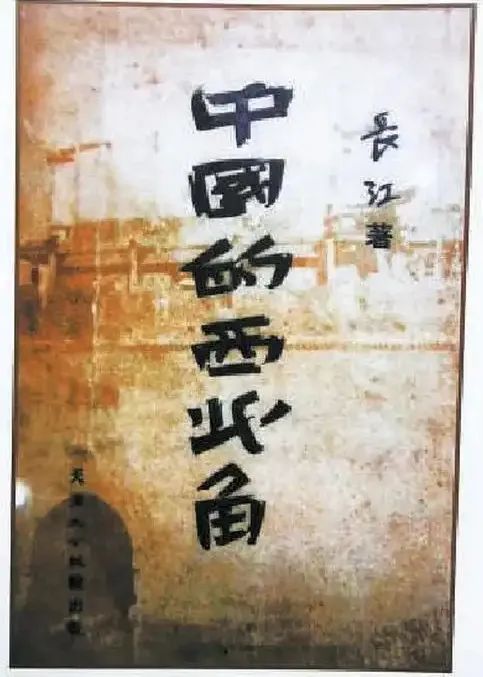 長江著
中國的西北角
天津大公報館出版